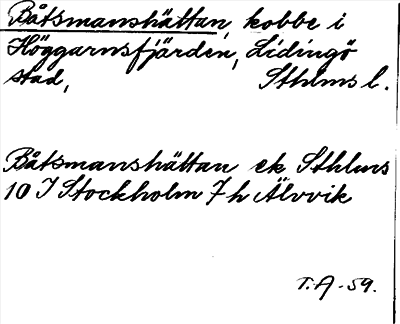 Båtsmanshättan, kobbe i
Höggarnsfjärden, Lidingö
stad, Sthlms l.
Båtsmanshättan ek Sthlms
10 I Stockholm 7 h Älvvik
T.A -59.